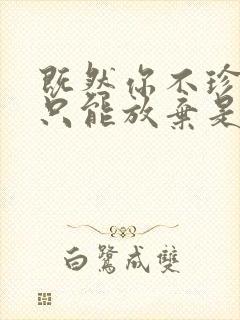 既然你不珍
只能放弃是
白鹭成双